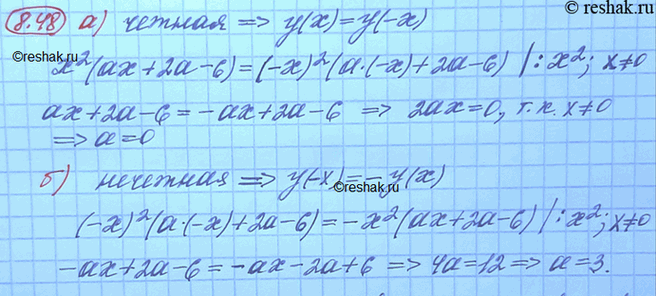 © reshak.ru
8.48 а) четная => y(x)=y(-x)
©reshak.ru
x²(ax+2a-6)=(-x)²(a·(-x)+2a-6) |:x²; x≠0
ax+2a-6=-ax+2a-6 => 2ax=0, т.к. x≠0
=> a=0
б) нечетная => y(-x)=-y(x)
©reshak.ru
(-x)²(a·(-x)+2a-6)=-x²(ax+2a-6) |:x²; x≠0
-ax+2a-6=-ax-2a+6 => 4a=12 => a=3.